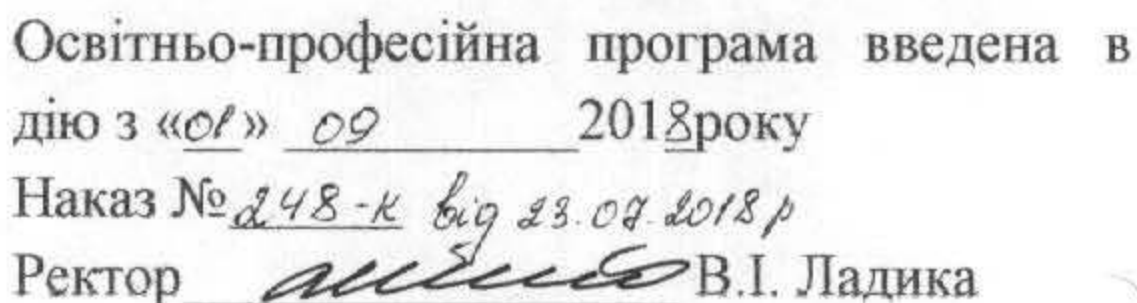 Освітньо-професійна програма введена в
дію з «01» 09 2018року
Наказ № 248-к від 23.07.2018 р
Ректор В.І. Ладика